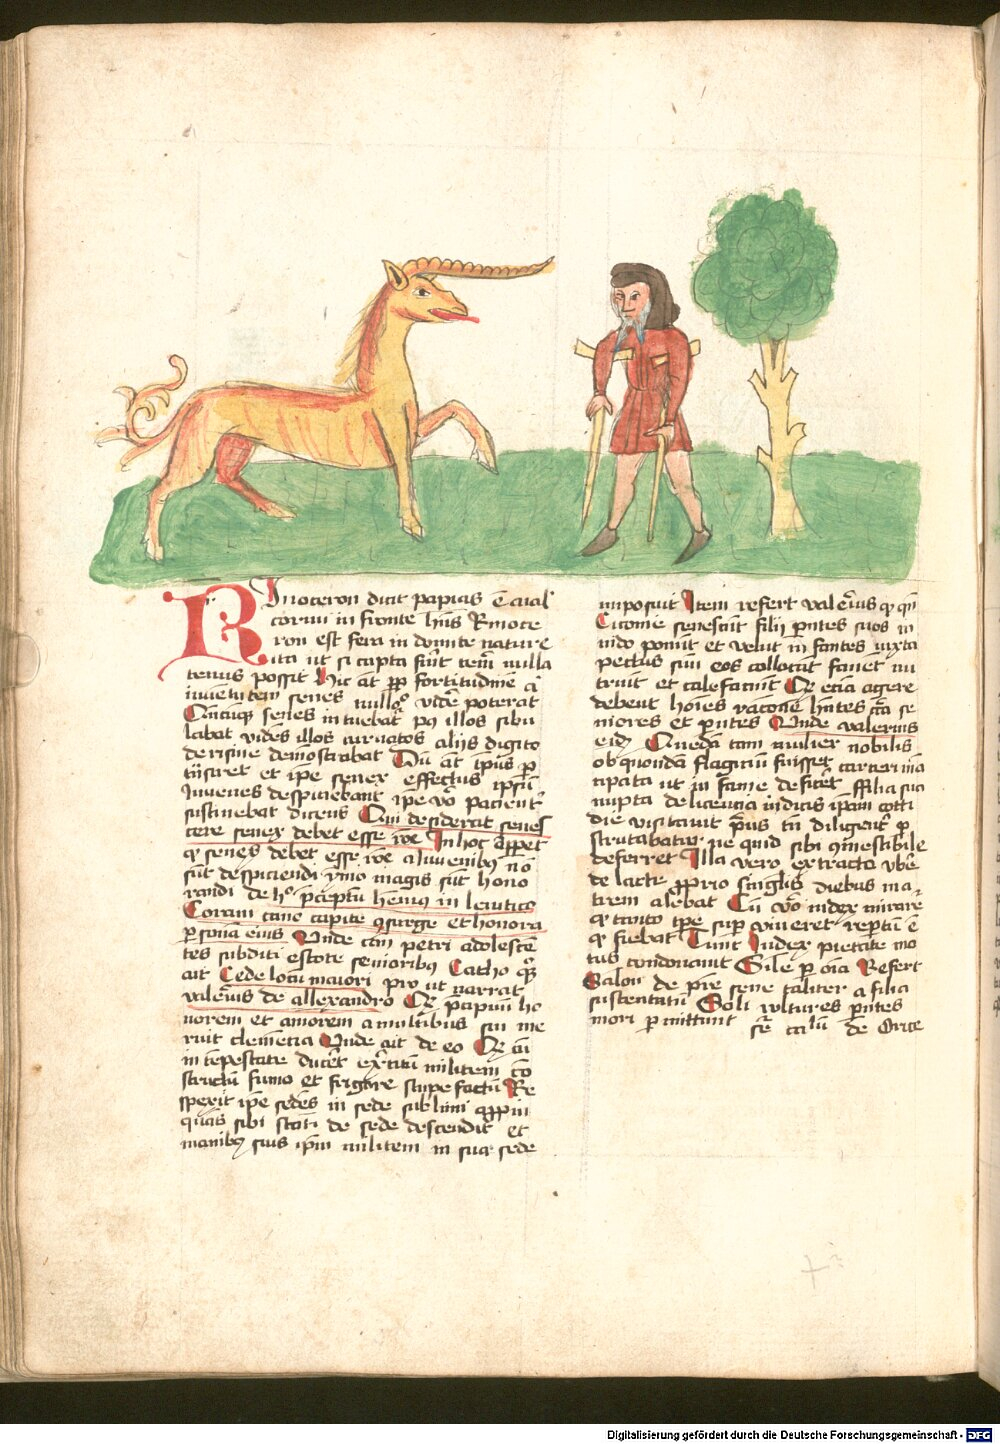 Rinoceron dicit papias ē aīal
cornu in fronte hn̄s Rinoce
ron est fera in domite nature
Ita ut si capta fūit tenēi nulla
tenus possit Hic at̄ ꝓp̄ fortitudinē
iuuentutem senes nullo videre poterat
Cūncūq̄ senes intuebat̄ pꝯ illos sibu
labat videns illos curuatos aliis digito
derisine demōstrabat Dū at̄ tp̄us
tn̄siret et ip̄e senex effectus ip̄sū
Iuuenes despiciebant ipe vō pacient̄
sustinebat dicens Qui desiderat senes
cere senex debet esse Inhoc apꝑet
qꝫ senex debet esse a iuuenibꝫ nō
sūt despiciendi ymo magis sūt hono
randi de hꝰ p̄ceptū hēmus in leuitico
Coram cano capite ꝯsurge et honora
ꝑsonā Unde petri adolescē
tes subditi estote senioribꝫ Catho
ait Cede locū maiori ut narrat
valeriꝰ de allexandro Qꝫ
norem et amorem a militibus sui me
ruit clemēcia Unde ait de eo Qꝫ cū
in tēpestate ducēt exercitū militem
fumo et frigore stupefactū Re
spexit ip̄e sedēs in sede sublimi
sibi de sede descendit et
manibꝫ suis ip̄m militem in sua sede
imposuit Item refert valeriꝰ qꝫ qn̄
Ciconie senescūt filij p̄ntes suos in
nido ponūt et velut infantes iuxta
pectus suū eos collocāt fouet nu
triūt et calefaciūt Qꝫ ecia agere
debent hoīes racionē hn̄tes se
niores et p̄ntes Unde valerius
Quedā tam mulier nobilis
ob quondā flagiciū fuisset carceri mā
cipata ut in fame deficeret ffilia sua
nupta de licencia iudicis ip̄am cotti
die visitauit p̄us tn̄ diligent̄ ꝑ
strutabatur ne quid sibi ꝯmestibile
deferret Illa vero extracto vbē
de lacte ꝓprio singlis diebus ma
trem alebat Cū vō iudex mirare
qꝫ tanto tpe sup̄ viueret reptū ē
qꝫ fiebat Tunc Iudex pietate mo
tus condonauit Sile ꝑ oīa Refert
Salon de pr̄e sene taliter a filia
sustentatū Soli vltures p̄ntes
mori ꝑmittunt de
Digitalisierung gefördert durch die Deutsche Forschungsgemeinschaft - DFG